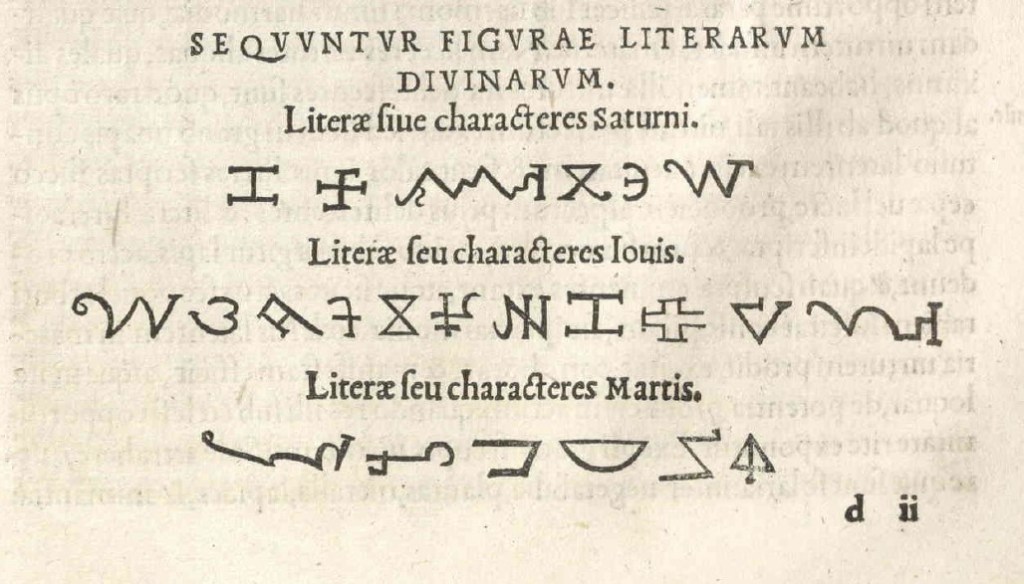 SEQVVNTVR FIGVRAE LITERARVM
DIVINARVM.
Literæ ſiue characteres Saturni.
Literæ ſeu characteres Iouis.
Literæ ſeu characteres Martis.
d ii